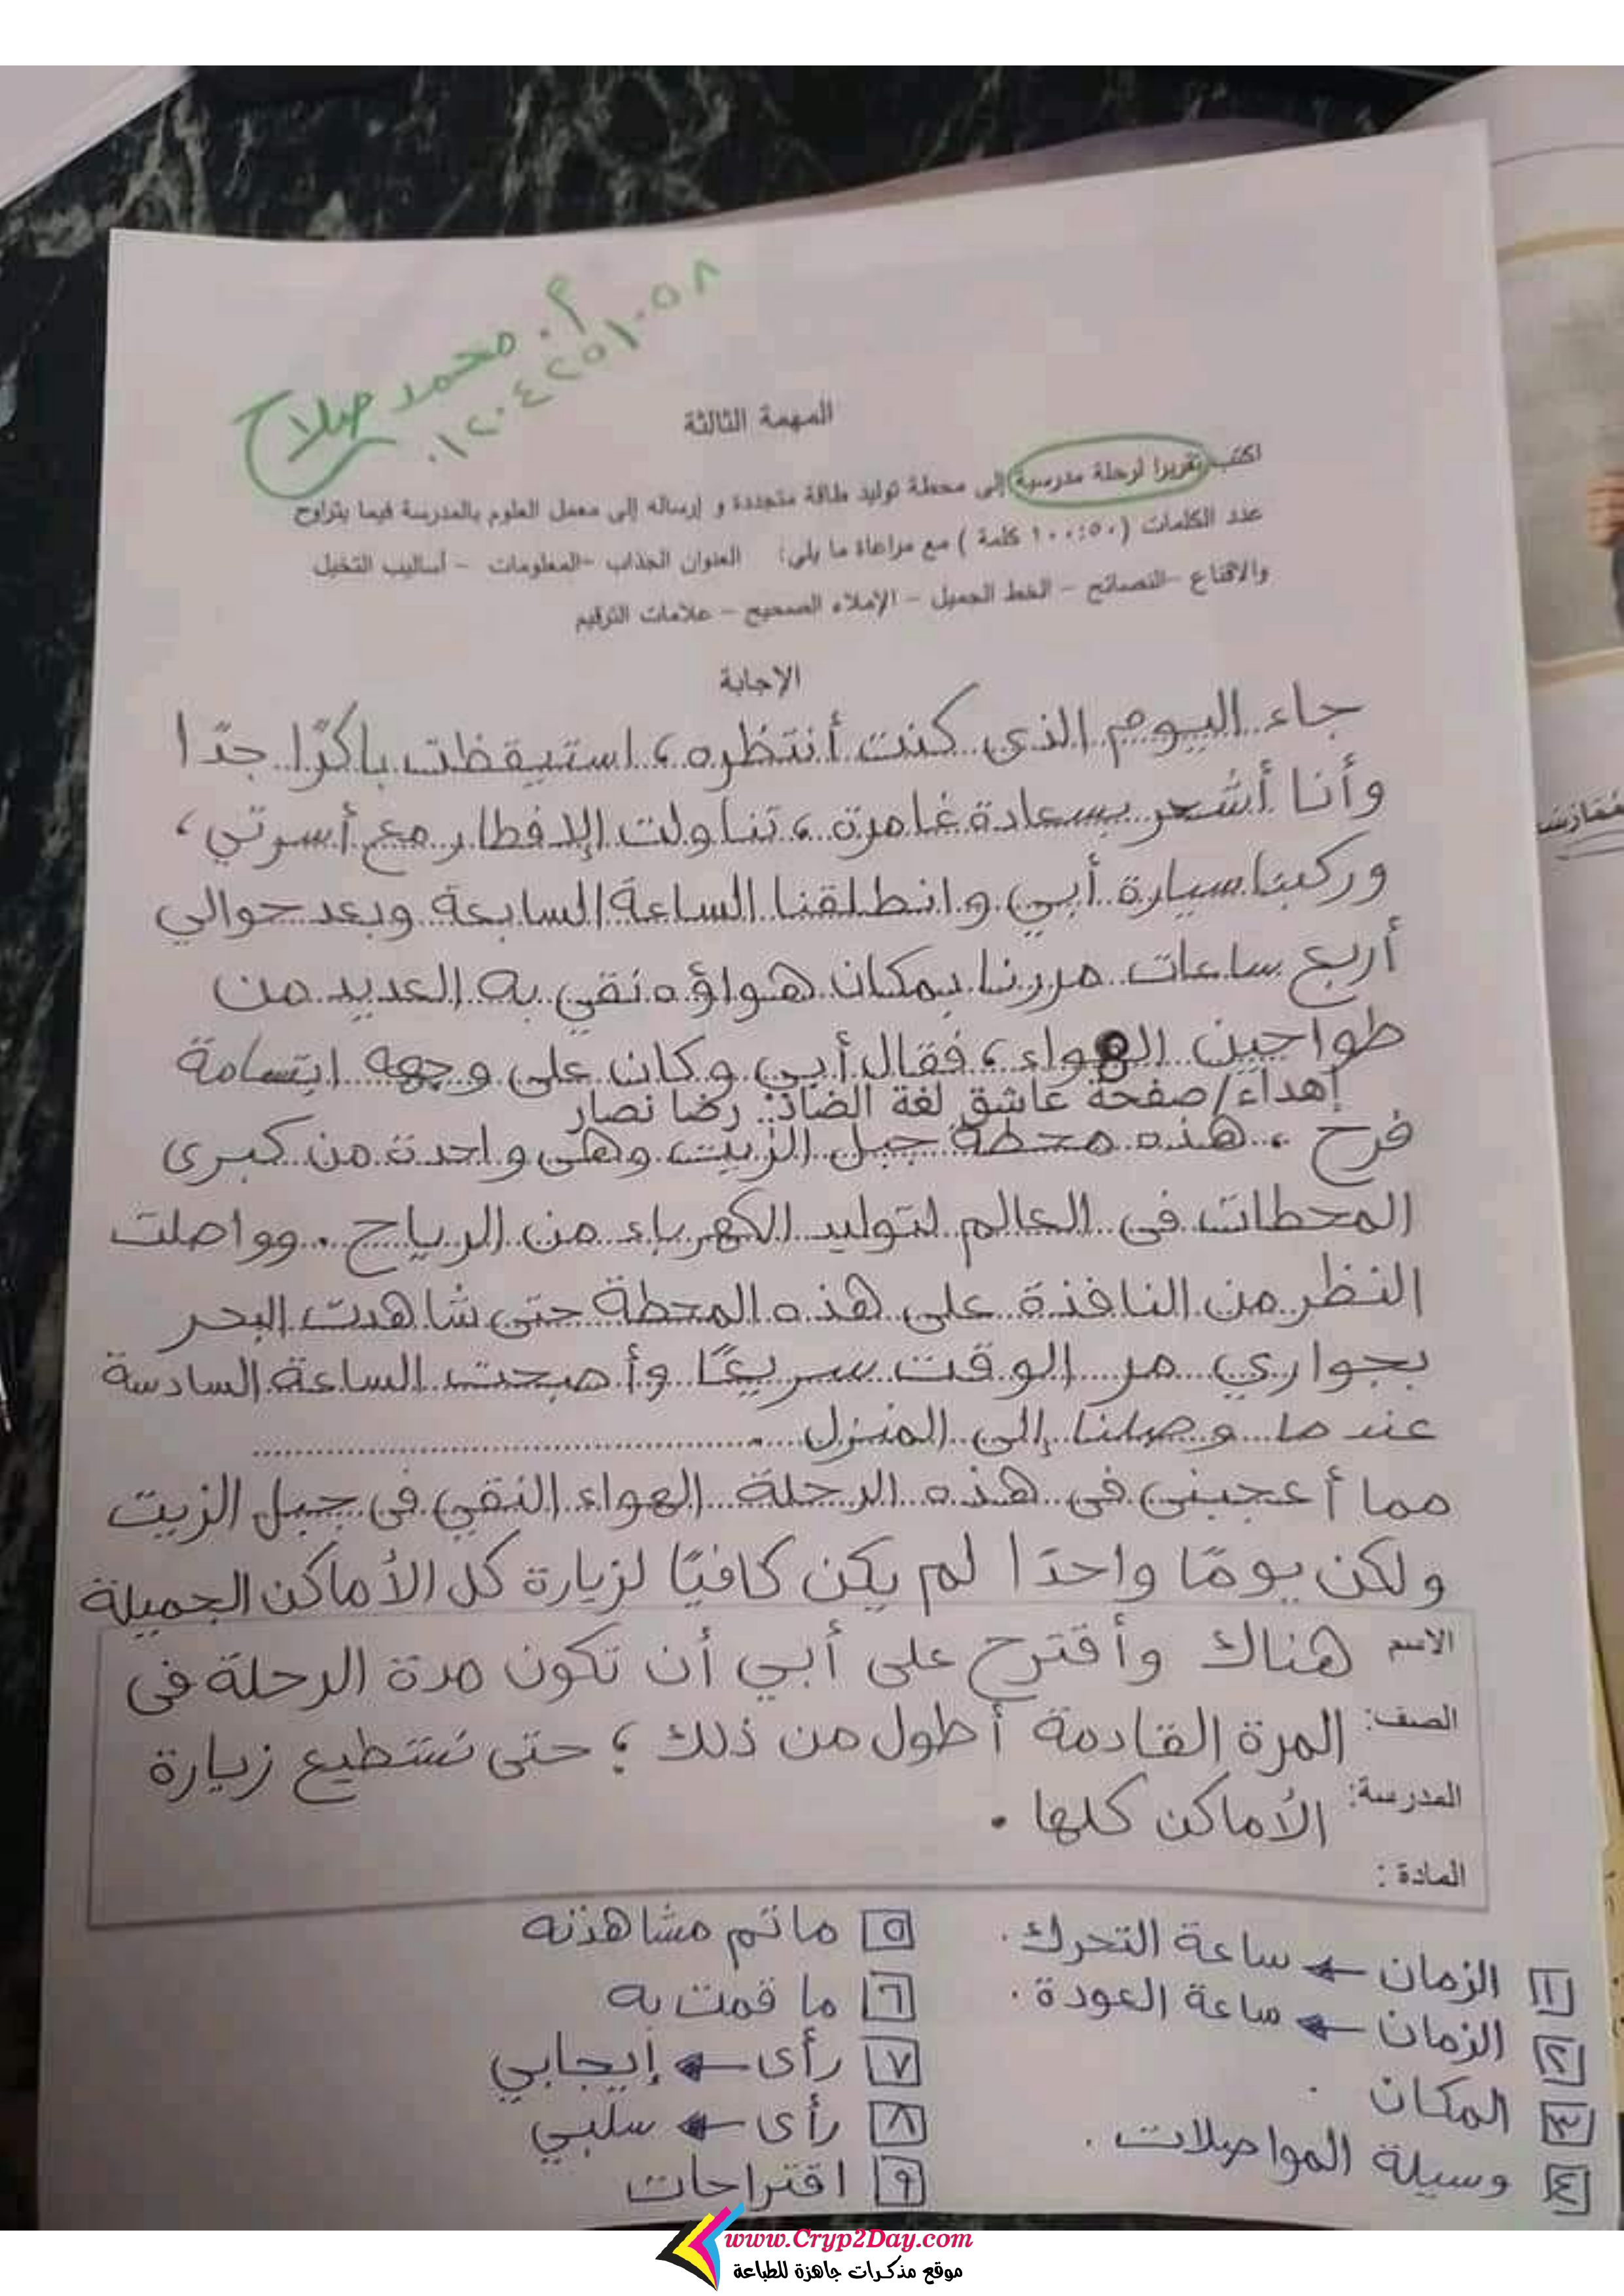 م. محمد صلاح
٠١٢٠٤٢٥١٠٥٨
المهمة الثالثة
اكتب تقريرا لرحلة مدرسية إلى محطة توليد طاقة متجددة و إرساله إلى معمل العلوم بالمدرسة فيما يتراوح
عدد الكلمات (١٠٠:٥٠ كلمة ) مع مراعاة ما يلي: العنوان الجذاب -المعلومات - أساليب التخيل
والاقناع -النصائح - الخط الجميل - الإملاء الصحيح - علامات الترقيم
الإجابة
جاء اليوم الذى كنت أنتظره، استيقظت باكرًا جدًا
وأنا أشعر بسعادة غامرة، تناولت الإفطار مع أسرتي،
وركبنا سيارة أبي وانطلقنا الساعة السابعة وبعد حوالي
أربع ساعات مررنا بمكان هواؤه نقي به العديد من
طواحين الهواء، فقال أبي وكان على وجهه ابتسامة
إهداء/صفحة عاشق لغة الضاد: رضا نصار
فرح . هذه محطة جبل الزيت وهى واحدة من كبرى
المحطات فى العالم لتوليد الكهرباء من الرياح . وواصلت
النظر من النافذة على هذه المحطة حتى شاهدت البحر
بجواري مر الوقت سريعًا وأصبحت الساعة السادسة
عندما وصلنا إلى المنزل .
مما أعجبنى فى هذه الرحلة الهواء النقي فى جبل الزيت
ولكن يومًا واحدًا لم يكن كافيًا لزيارة كل الأماكن الجميلة
الاسم هناك وأقترح على أبي أن تكون مدة الرحلة فى
الصف: المرة القادمة أطول من ذلك ؛ حتى نستطيع زيارة
المدرسة: الأماكن كلها .
المادة :
١ الزمان ← ساعة التحرك .
٢ الزمان ← ساعة العودة .
٣ المكان .
٤ وسيلة المواصلات .
٥ ما تم مشاهدته
٦ ما قمت به
٧ رأى ← إيجابي
٨ رأى ← سلبي
٩ اقتراحات
www.Cryp2Day.com
موقع مذكرات جاهزة للطباعة